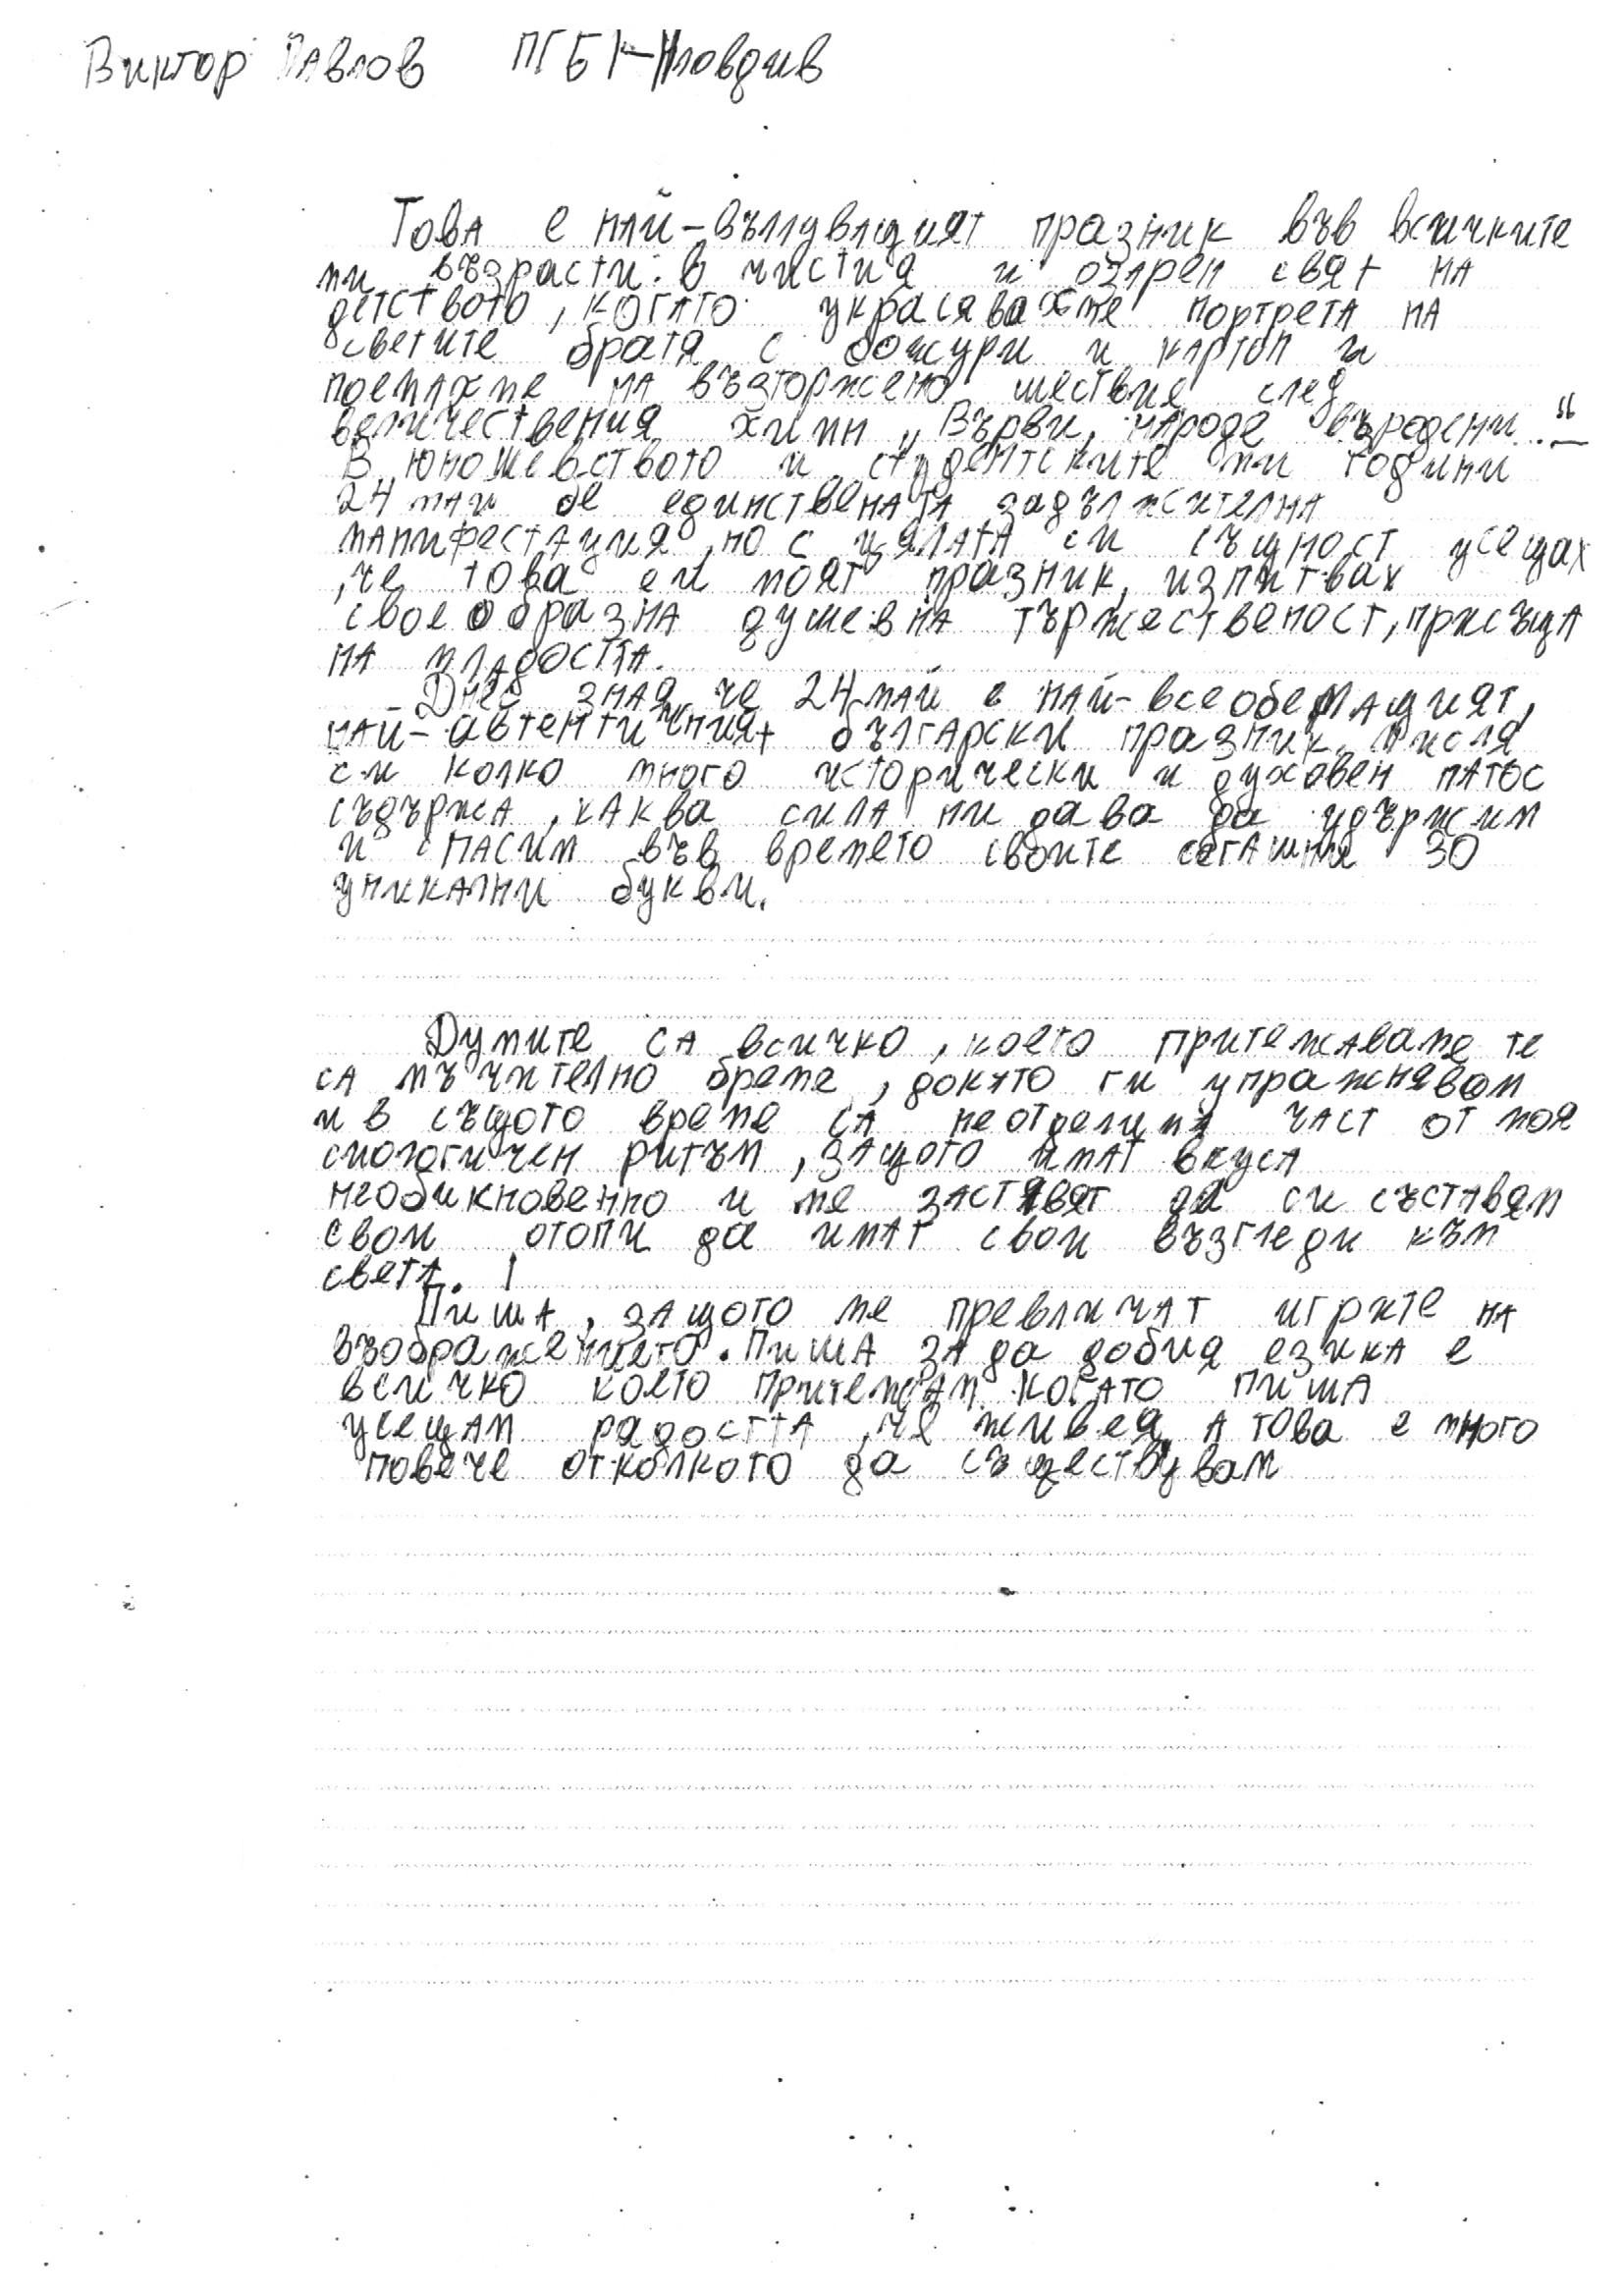 Виктор Павлов ПГБ Пловдив
Това е най-вълнуващият празник във всичките
ми възрасти: в чистия и озарен свят на
детството, когато украсявахме портрета на
светите братя с божури и картоп и
поемахме на възторжено шествие след
величествения химн „Върви, народе възродени..."
В юношевството и студентските ми години
24 май бе единствената задължителна
манифестация, но с цялата си същност усещах
, че това ей моят празник, изпитвах
своеобразна душевна тържественост, присъща
на младостта.
Днес зная че 24 май е най-всеобемащият,
най-автентичният български празник. Мисля
си колко много исторически и духовен патос
съдържа, каква сила ни дава да удържим
и спасим във времето своите сегашни 30
уникални букви.
Думите са всичко, което притежаваме те
са мъчително бреме, докато ги упражнявам
и в същото време са неотделима част от моя
биологичен ритъм, защото имат вкуса
необикновенно и ме заставят да си съставям
свои утопии да имат свои възгледи към
света.
Пиша, защото ме превличат игрите на
въображението. Пиша за да добия езика е
всичко което притежам. Когато пиша
усещам радостта, че живея, а това е много
повече отколкото да съществувам